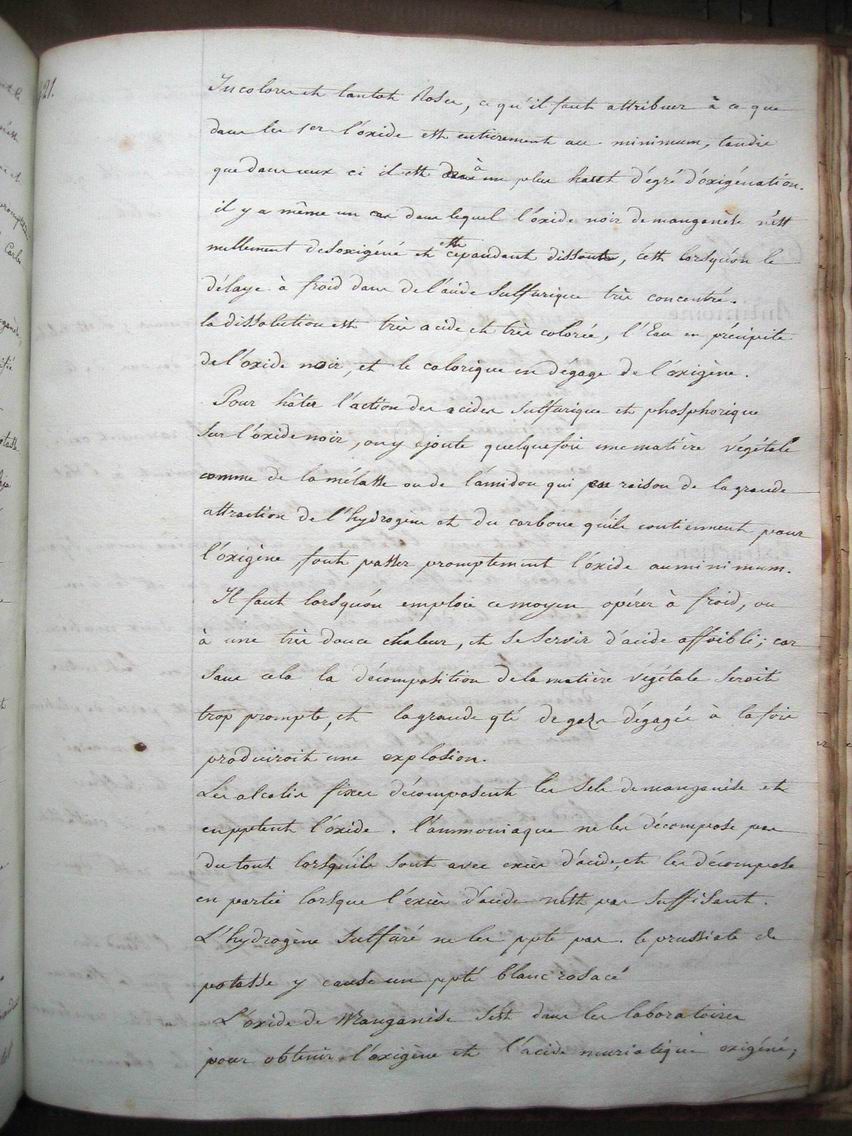 21.
Incolores et tantot Roses, ce qu'il faut attribuer à ce que
dans les 1ers l'oxide est entierement au minimum, tandis
que dans ceux ci il est à un plus haut dégré d'oxigénation.
il y a même un cas dans lequel l'oxide noir de manganèse n'est
nullement desoxigéné et est cependant dissout, c'est lorsqu'on le
délaye à froid dans de l'acide sulfurique très concentré.
la dissolution est très acide et très colorée, l'Eau en précipite
de l'oxide noir, et le calorique en degage de l'oxigène.
Pour hâter l'action des acides sulfurique et phosphorique
sur l'oxide noir, on y ajoute quelquefois une matière végétale
comme de la mélasse ou de l'amidon qui en raison de la grande
attraction de l'hydrogene et du carbone qu'ils contiennent pour
l'oxigène font passer promptement l'oxide au minimum.
Il faut lorsqu'on emploie ce moyen opérer à froid, ou
à une très douce chaleur, et se servir d'acide affoibli; car
sans cela la décomposition de la matière végétale seroit
trop prompte, et la grande qté de gaz dégagée à la fois
produiroit une explosion.
Les alcalis fixes décomposent les sels de manganèse et
en pptent l'oxide. l'ammoniaque ne les décompose pas
du tout lorsqu'ils sont avec excès d'acide, et les décompose
en partie lorsque l'excès d'acide n'est pas suffisant.
L'hydrogène sulfuré ne les ppte pas. le prussiate de
potasse y cause un ppté blanc rosacé
L'oxide de Manganèse sert dans les laboratoires
pour obtenir l'oxigène et l'acide muriatique oxigéné;